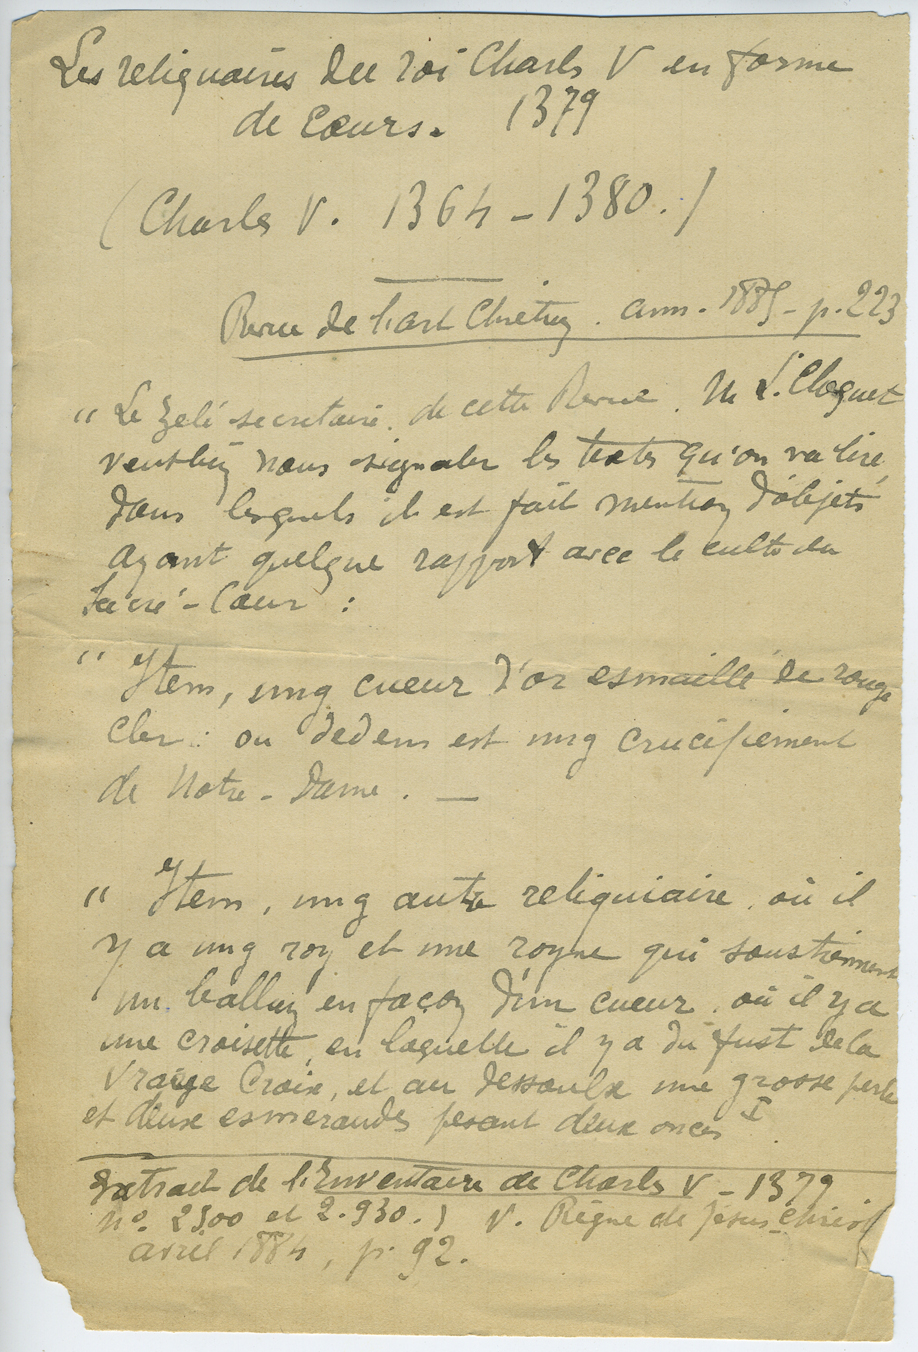 Les reliquaires du roi Charles V en forme
de Cœurs. 1379
(Charles V. 1364 – 1380.)
Revue de l'art Chrétien. ann. 1885 – p. 223
" Le zélé secrétaire de cette Revue, M L. Cloquet
veut bien nous signaler les textes qu'on va lire,
dans lesquels il est fait mention d'objets
ayant quelque rapport avec le culte du
Sacré-Cœur :
" Item, ung cueur d'or esmaillé de rouge
cler : ou dedens est ung crucifiement
de Notre-Dame. —
" Item, ung autre reliquiaire, où il
y a ung roy et une royne qui soustiennent
un ballay en façon d'un cueur, où il y a
une croisette, en laquelle il y a du fust de la
Vraiye Croix, et au dessoulx une grosse perle
et deux esmeraudes pesant deux onces I
Extrait de l'Inventaire de Charles V – 1379
nos. 2500 et 2.930.) V. Règne de Jésus-Christ
avril 1884, p. 92.